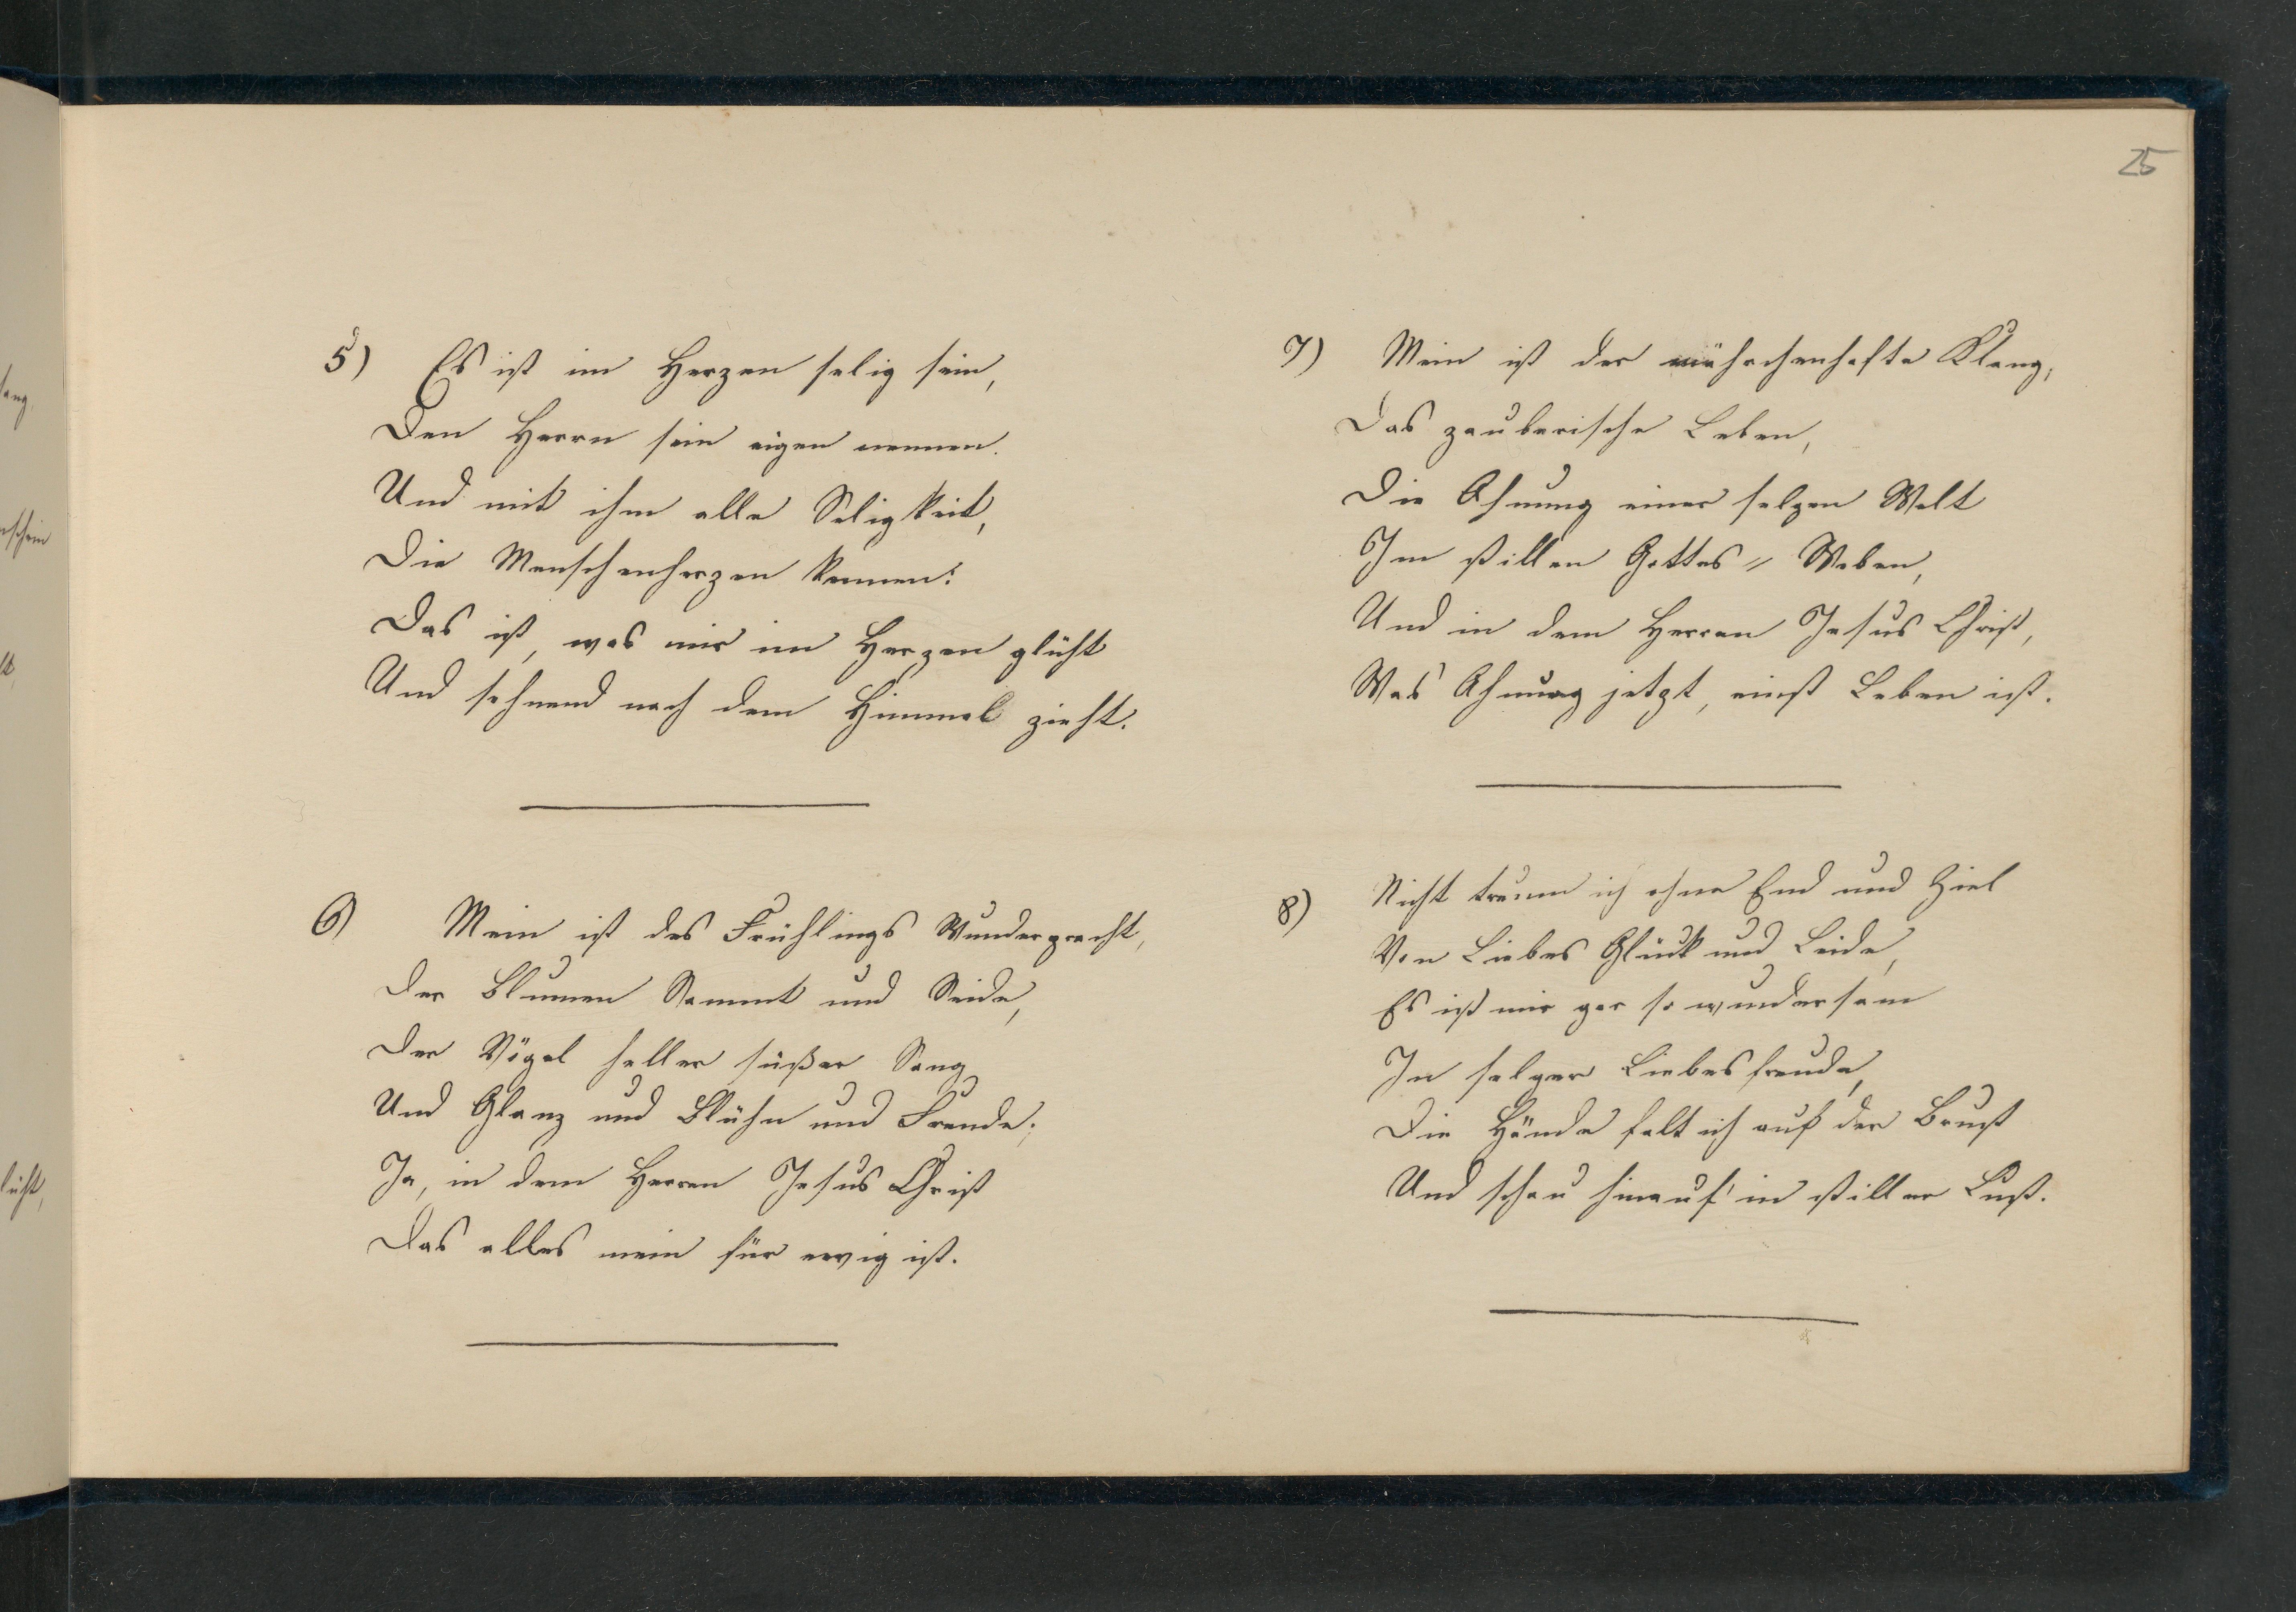 25
5) Es ist im Herzen selig sein,
Den Herrn sein eigen nennen.
Und mit ihm alle Seligkeit,
Die Menschenherzen kennen:
Das ist, was mir im Herzen glüht
Und sehnend nach dem Himmel zieht.
6) Mein ist des Frühlings Wunderpracht,
Der Blumen Sammt und Seide,
Der Vögel heller süßer Sang
Und Glanz und Blühn und Freude;
Ja, in dem Herren Jesus Christ
Das alles mein für ewig ist.
7) Mein ist der mährchenhafte Klang,
Das zauberische Leben,
Die Ahnung einer selgen Welt
Im stillen Gottes= Weben,
Und in dem Herren Jesus Christ,
Was Ahnung jetzt, einst Leben ist.
8) Nicht träum ich ohne End und Ziel
Von Liebes Glück und Leide,
Es ist mir gar so wundersam
In selger Liebesfreude,
Die Hände falt ich auf der Brust
Und schau hinauf in stiller Lust.